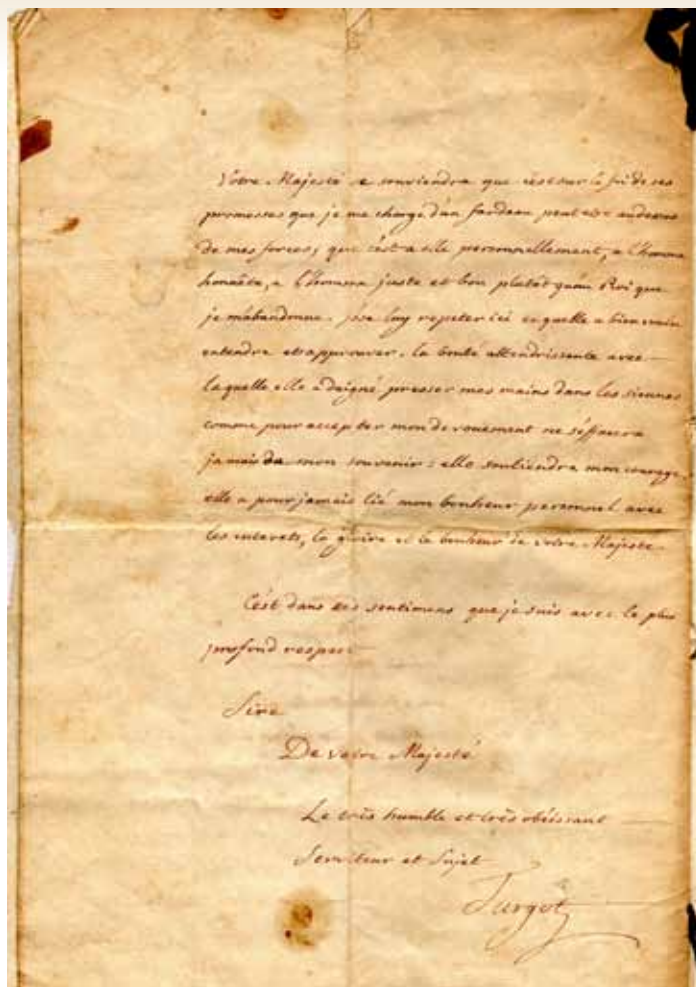 Votre Majesté se souviendra que c'est sur la foi de ses
promesses que je me charge d'un fardeau peut etre audessus
de mes forces, que c'est a elle personnellement, a l'homme
honnête, a l'homme juste et bon plutôt qu'au Roi que
je m'abandonne. j'ose luy repeter ici ce quelle a bien voulu
entendre et approuver. la bonté attendrissante avec
laquelle elle a daigné presser mes mains dans les siennes
comme pour accepter mon devouement ne s'effacera
jamais de mon souvenir : elle soutiendra mon courage.
elle a pour jamais lié mon bonheur personnel avec
les interets, la gloire et le bonheur de votre Majesté.
C'est dans ces sentimens que je suis avec le plus
profond respect
Sire
De votre Majesté
Le très humble et très obéissant
Serviteur et Sujet
Turgot